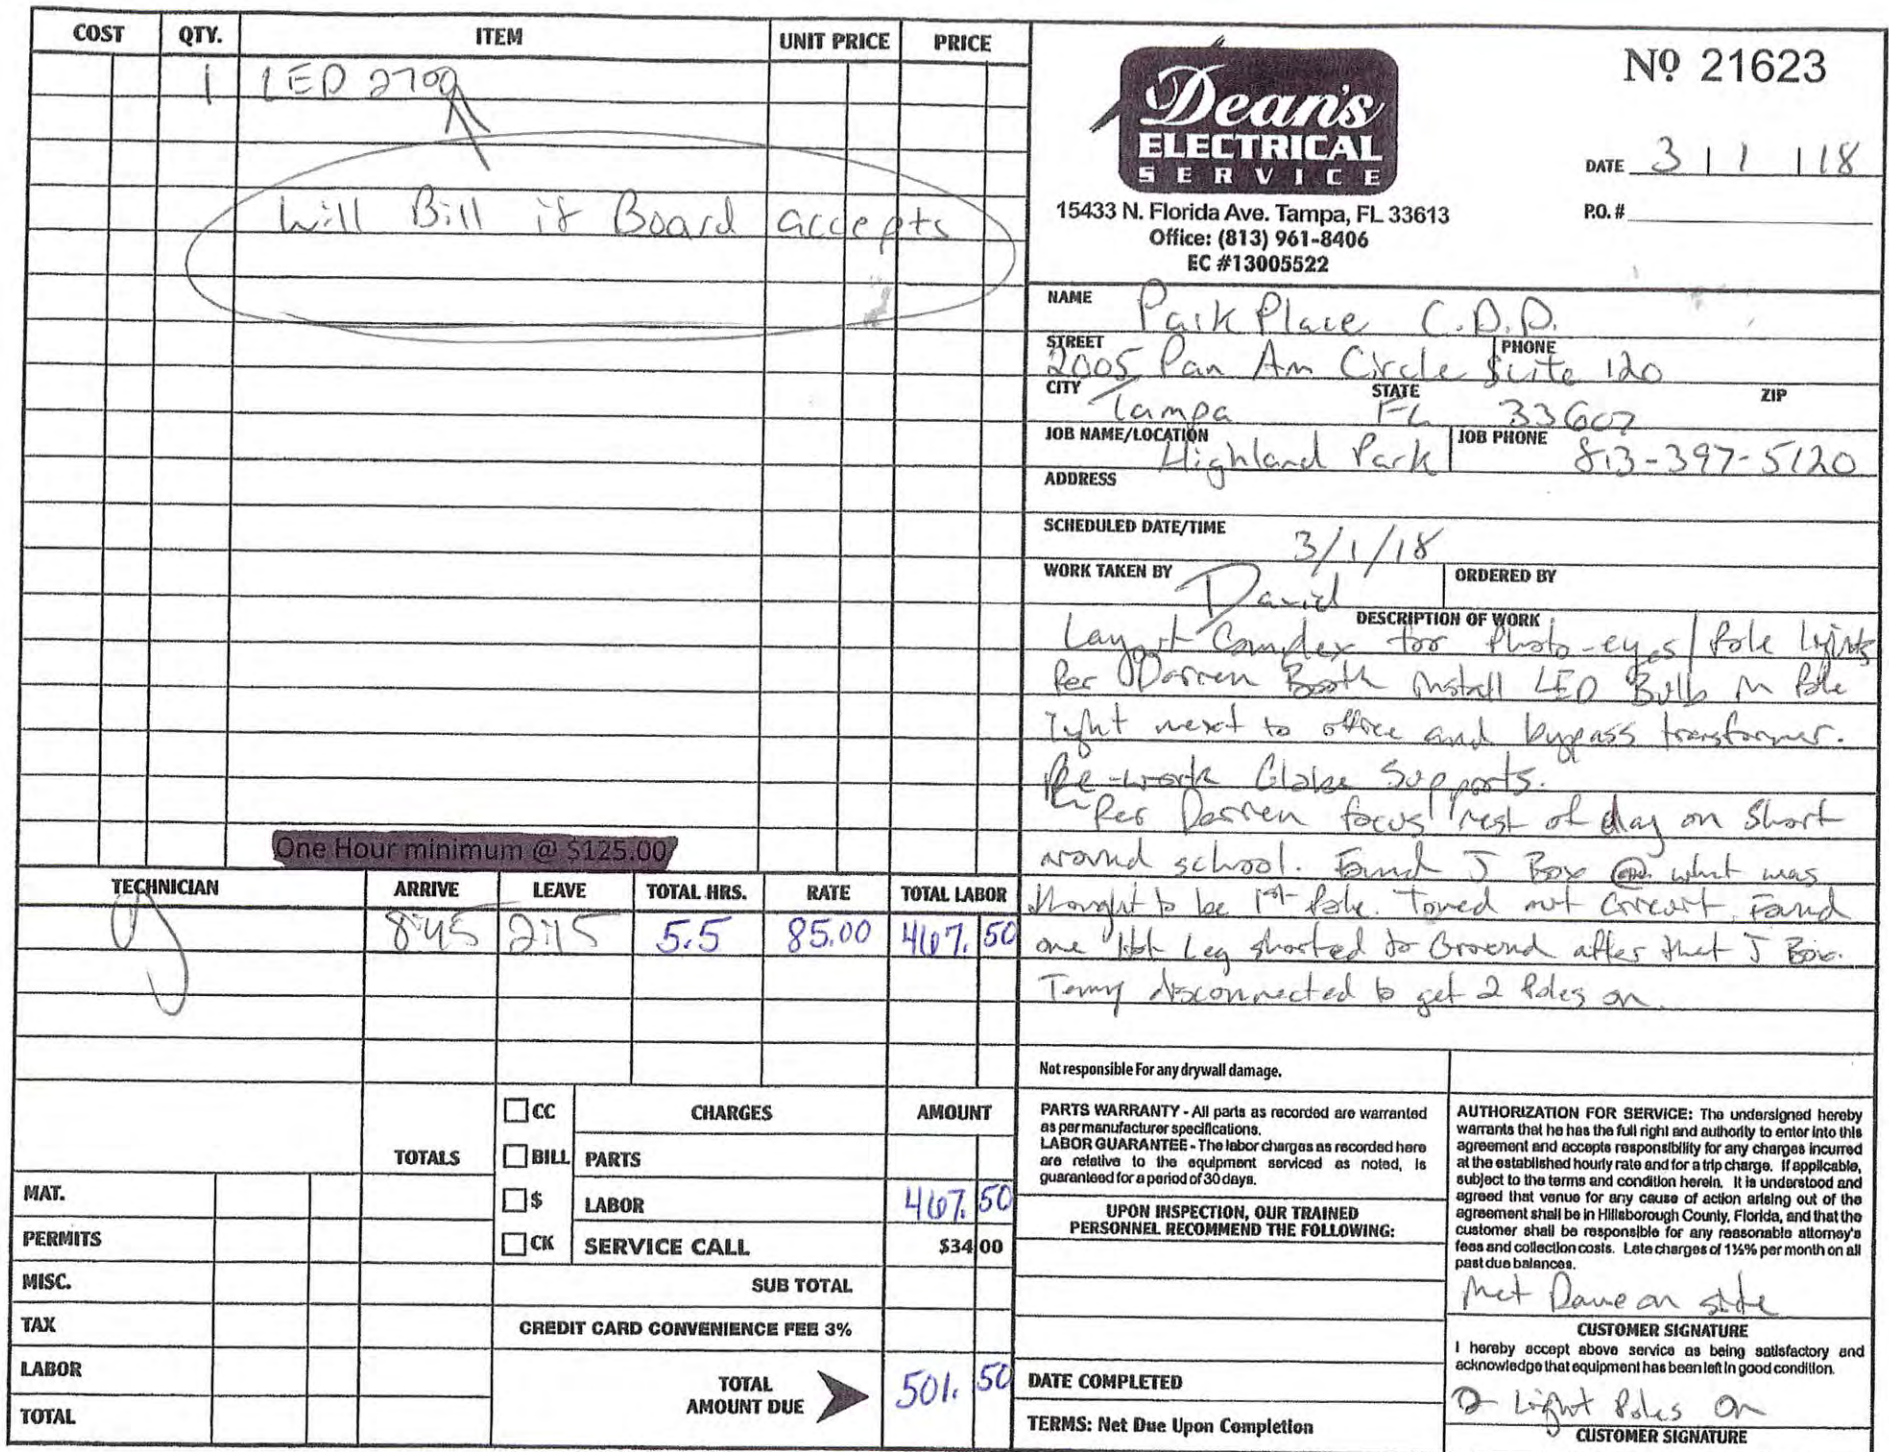 COST QTY. ITEM UNIT PRICE PRICE
1 LED 2700
Will Bill if Board accepts
One Hour minimum @ $125.00
TECHNICIAN ARRIVE LEAVE TOTAL HRS. RATE TOTAL LABOR
8:45 2:15 5.5 85.00 467.50
CC CHARGES AMOUNT
TOTALS BILL PARTS
MAT. $ LABOR 467.50
PERMITS CK SERVICE CALL $34 00
MISC. SUB TOTAL
TAX CREDIT CARD CONVENIENCE FEE 3%
LABOR TOTAL
AMOUNT DUE 501.50
TOTAL
Dean's
ELECTRICAL
SERVICE
15433 N. Florida Ave. Tampa, FL 33613
Office: (813) 961-8406
EC #13005522
Nº 21623
DATE 3 | 1 | 18
P.O. #
NAME Park Place C.D.D.
STREET 2005 Pan Am Circle Suite 120 PHONE
CITY Tampa STATE FL 33607 ZIP
JOB NAME/LOCATION Highland Park JOB PHONE 813-397-5120
ADDRESS
SCHEDULED DATE/TIME 3/1/18
WORK TAKEN BY David ORDERED BY
DESCRIPTION OF WORK
Layout Complex for Photo-eyes/Pole Lights
Per Darren Booth Install LED Bulb in Pole
light next to office and bypass transformer.
Re-work Globe Supports.
Per Darren focus rest of day on Short
around school. Found J Box @ what was
thought to be 1st Pole. Toned out Circuit. Found
one Hot Leg shorted to Ground after that J Box.
Temp disconnected to get 2 Poles on.
Not responsible For any drywall damage.
PARTS WARRANTY - All parts as recorded are warranted
as per manufacturer specifications.
LABOR GUARANTEE - The labor charges as recorded here
are relative to the equipment serviced as noted, is
guaranteed for a period of 30 days.
UPON INSPECTION, OUR TRAINED
PERSONNEL RECOMMEND THE FOLLOWING:
DATE COMPLETED
TERMS: Net Due Upon Completion
AUTHORIZATION FOR SERVICE: The undersigned hereby
warrants that he has the full right and authority to enter into this
agreement and accepts responsibility for any charges incurred
at the established hourly rate and for a trip charge. If applicable,
subject to the terms and condition herein. It is understood and
agreed that venue for any cause of action arising out of the
agreement shall be in Hillsborough County, Florida, and that the
customer shall be responsible for any reasonable attorney's
fees and collection costs. Late charges of 1½% per month on all
past due balances.
Met Dave on site
CUSTOMER SIGNATURE
I hereby accept above service as being satisfactory and
acknowledge that equipment has been left in good condition.
2 Light Poles On
CUSTOMER SIGNATURE